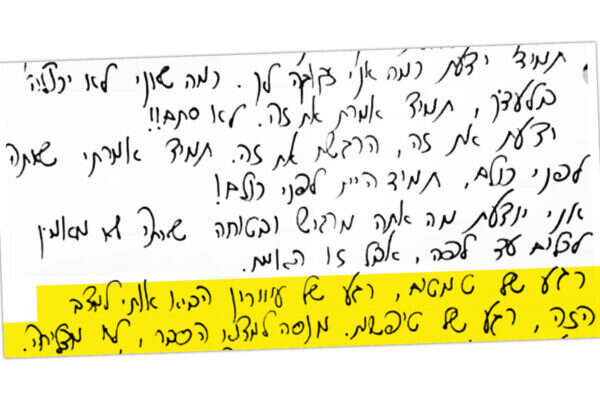 תמיד ידעת כמה אני זקוקה לך. כמה שאני לא יכולה
בלעדך, תמיד אמרת את זה. לא סתם!!
ידעת את זה, הרגשת את זה. תמיד אמרתי שאתה
לפני כולם, תמיד היית לפני כולם!
אני יודעת מה אתה מרגיש ובטוחה שאתה לא מאמין
עד לכה, אבל זו האמת.
רגע של טמטום, רגע של עיוורון הביא אותי למצב
הזה, רגע של טיפשות. מנסה למצוא הסבר, לא מצליחה.